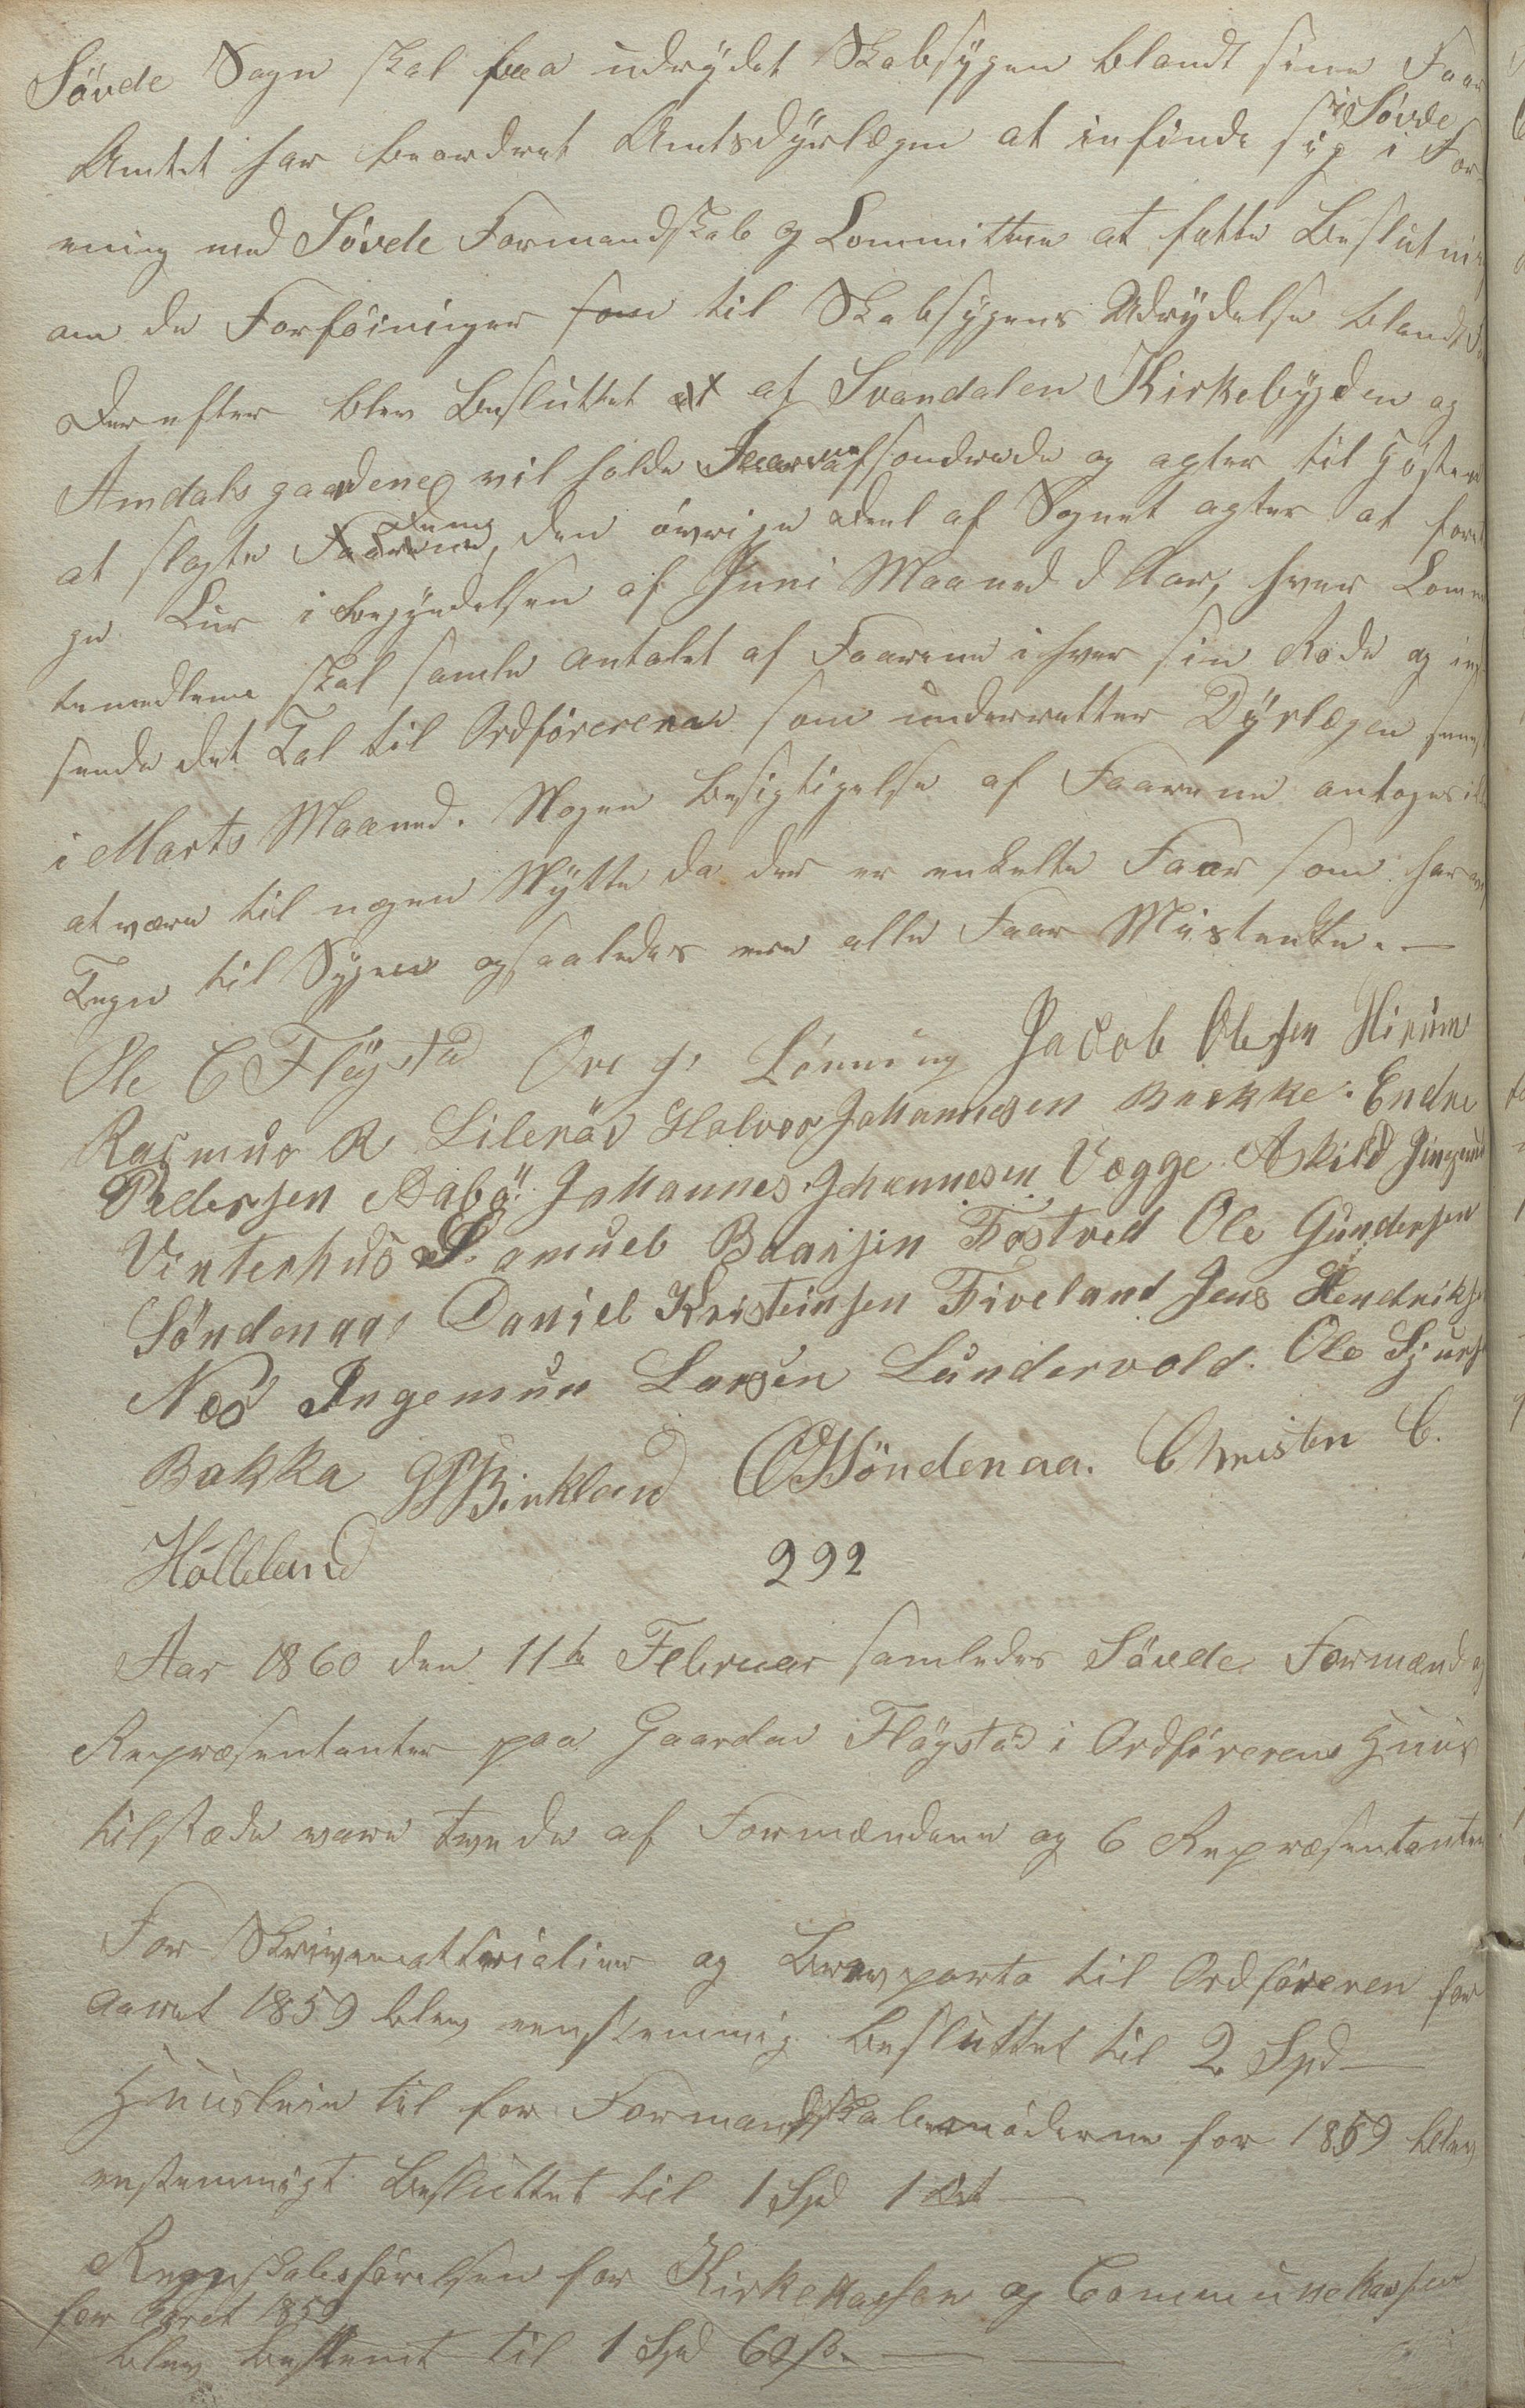 Søvde Sogn skal faa udrydet Skabsygen blandt sine Faar
Amtet har beordret Amtsdyrlægen at infinde sig i Søvde i For-
ening med Søvde Formandskab og Committeen at fatte Beslutning
om de Forføininger som til Skabsygens Udrydelse blandt
Derefter blev Besluttet at af Svandalen Kirkebygden og
Amdals gaardene vil holde afsondrede og agter til Høsten
at slagte Faarene, den øvrige Deel af Sognet agter at foreta
ge Cur i Begyndelsen af Juni Maaned d Aar, hver Commit
temedlem skal samle antalet af Faarene i hver sin Rode og ind
sende det Tal til Ordføreren som underretter Dyrlægen senest
i Marts Maaned. Nogen Besigtigelse af Faarene antages ikke
at være til nogen Nytte da der er enkelte Faar som har
Tegn til Sygen og saaledes ere alle Faar Mistenkte. —
Ole C Fløystad Ove J. Lønning Jacob Olesen Hiim
Rasmus R Lilenäs Halvor Johannesen Brekke. Endre
Pedersen Aabø. Johannes Johannesen Vægge. Askild
Vinterhus Samuel Baarsen Tostred Ole Gundersen
Søndenaa Daniel Kristensen Fiveland Jens Hendriksen
Næs Ingemun Larsen Lundervold. Ole Sjurs
Bakka Birkland Søndenaa. Christen C.
Hølleland
292
Aar 1860 den 11te Februar samledes Søvde Formænd og
Repræsentanter paa Gaarden Fløystad i Ordførerens Huus
tilstæde vare tvende af Formændene og 6 Repræsentanter
For Skrivematterialier og Brevporto til Ordføreren for
Aaret 1859 blev eenstemmig besluttet til 2 Spd —
Huusleie til for Formandskabsmøderne for 1859 blev
enstemmigt Besluttet til 1 Spd 1 Ort —
Regnskabsførelsen for Kirkekassen og Communekassen
for Aaret 1859
blev bestemt til 1 Spd 60 ß. —